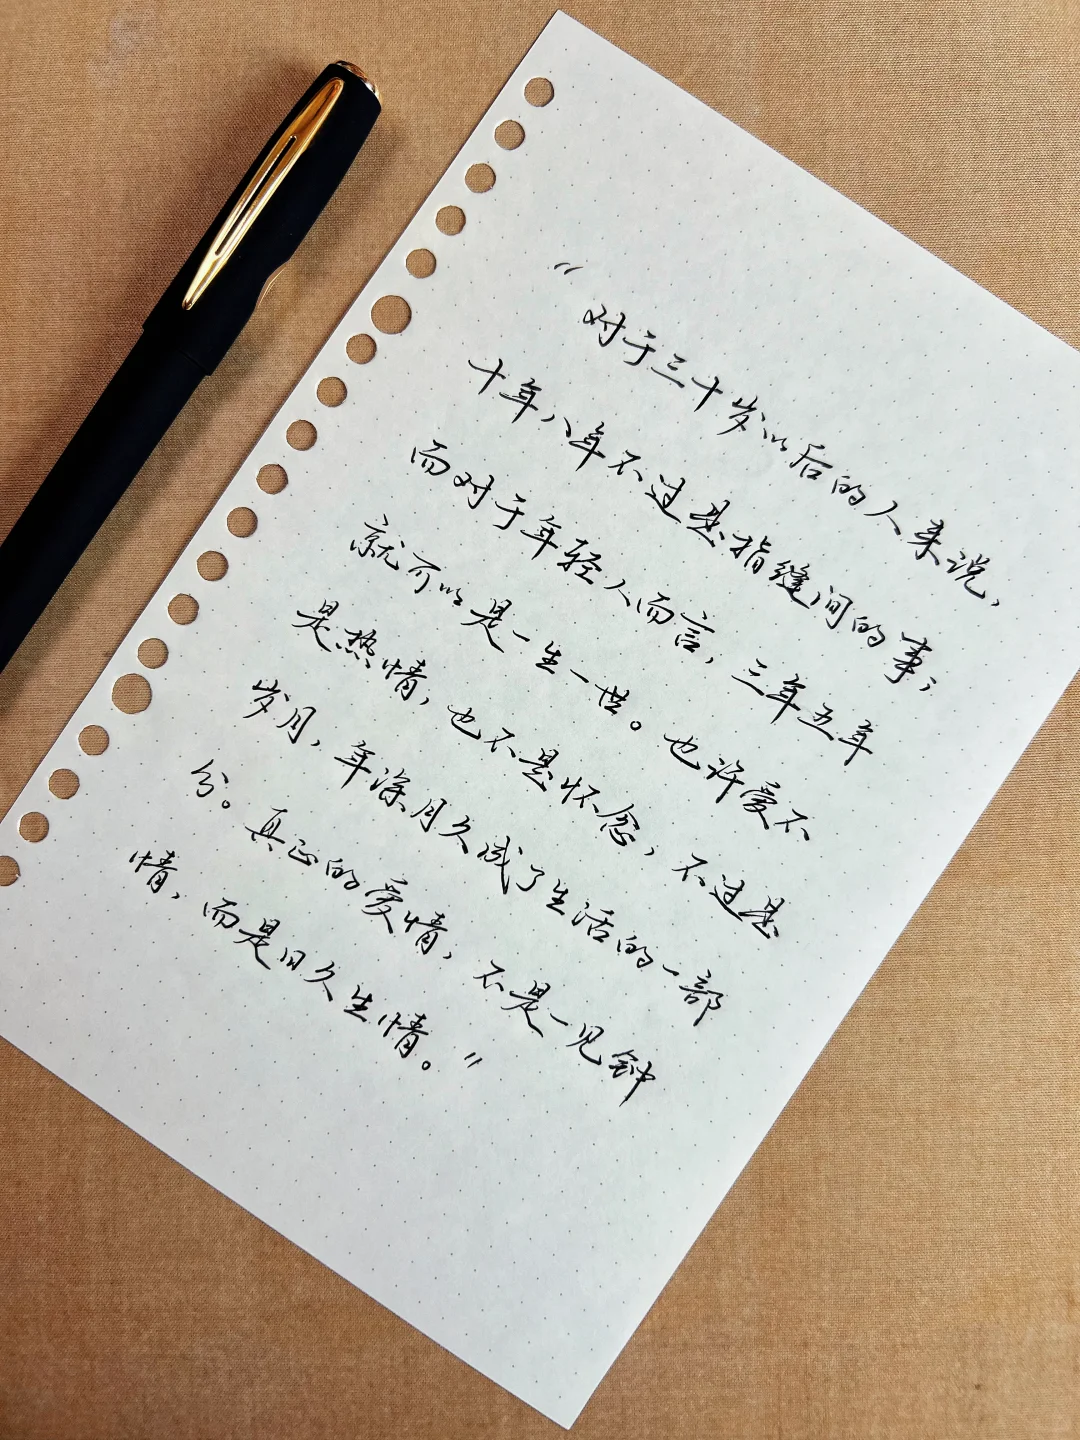 “对于三十岁以后的人来说，
十年八年不过是指缝间的事；
而对于年轻人而言，三年五年
就可以是一生一世。也许爱不
是热情，也不是怀念，不过是
岁月，年深月久成了生活的一部
分。真正的爱情，不是一见钟
情，而是日久生情。”